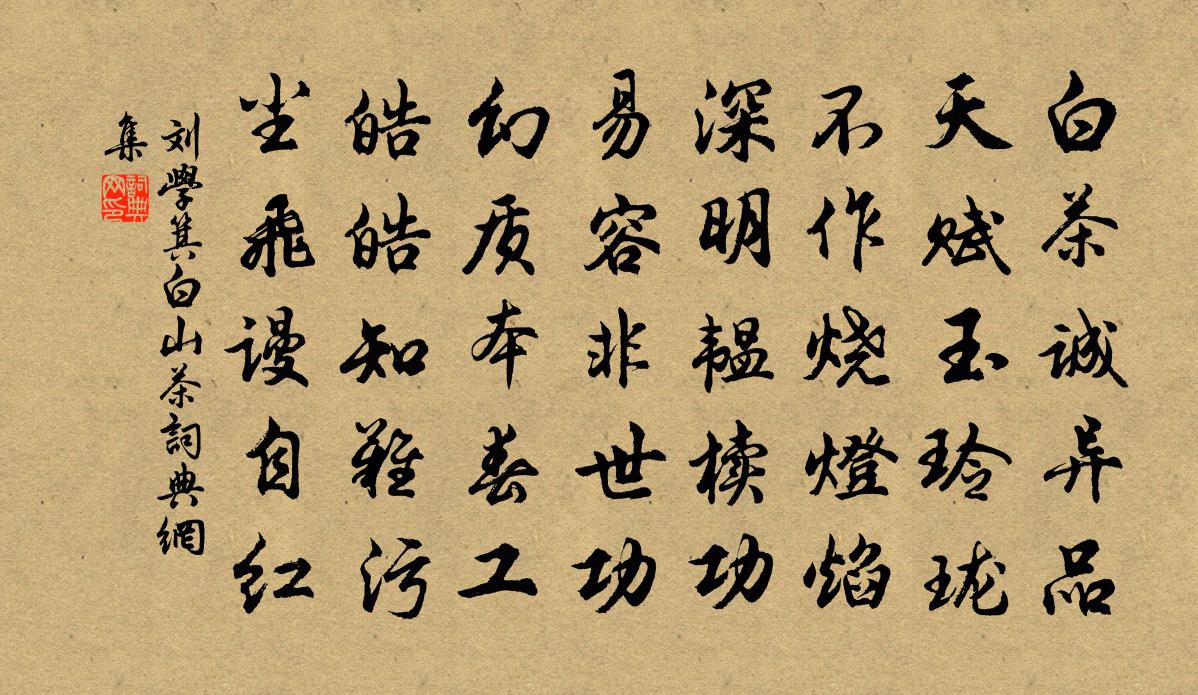 白茶诚异品
天赋玉玲珑
不作烧燈焰
深明韫椟功
易容非世功
幻质本春工
皓皓知難污
尘飞谩自红
刘學箕白山茶詞典網
集
詞典
网印